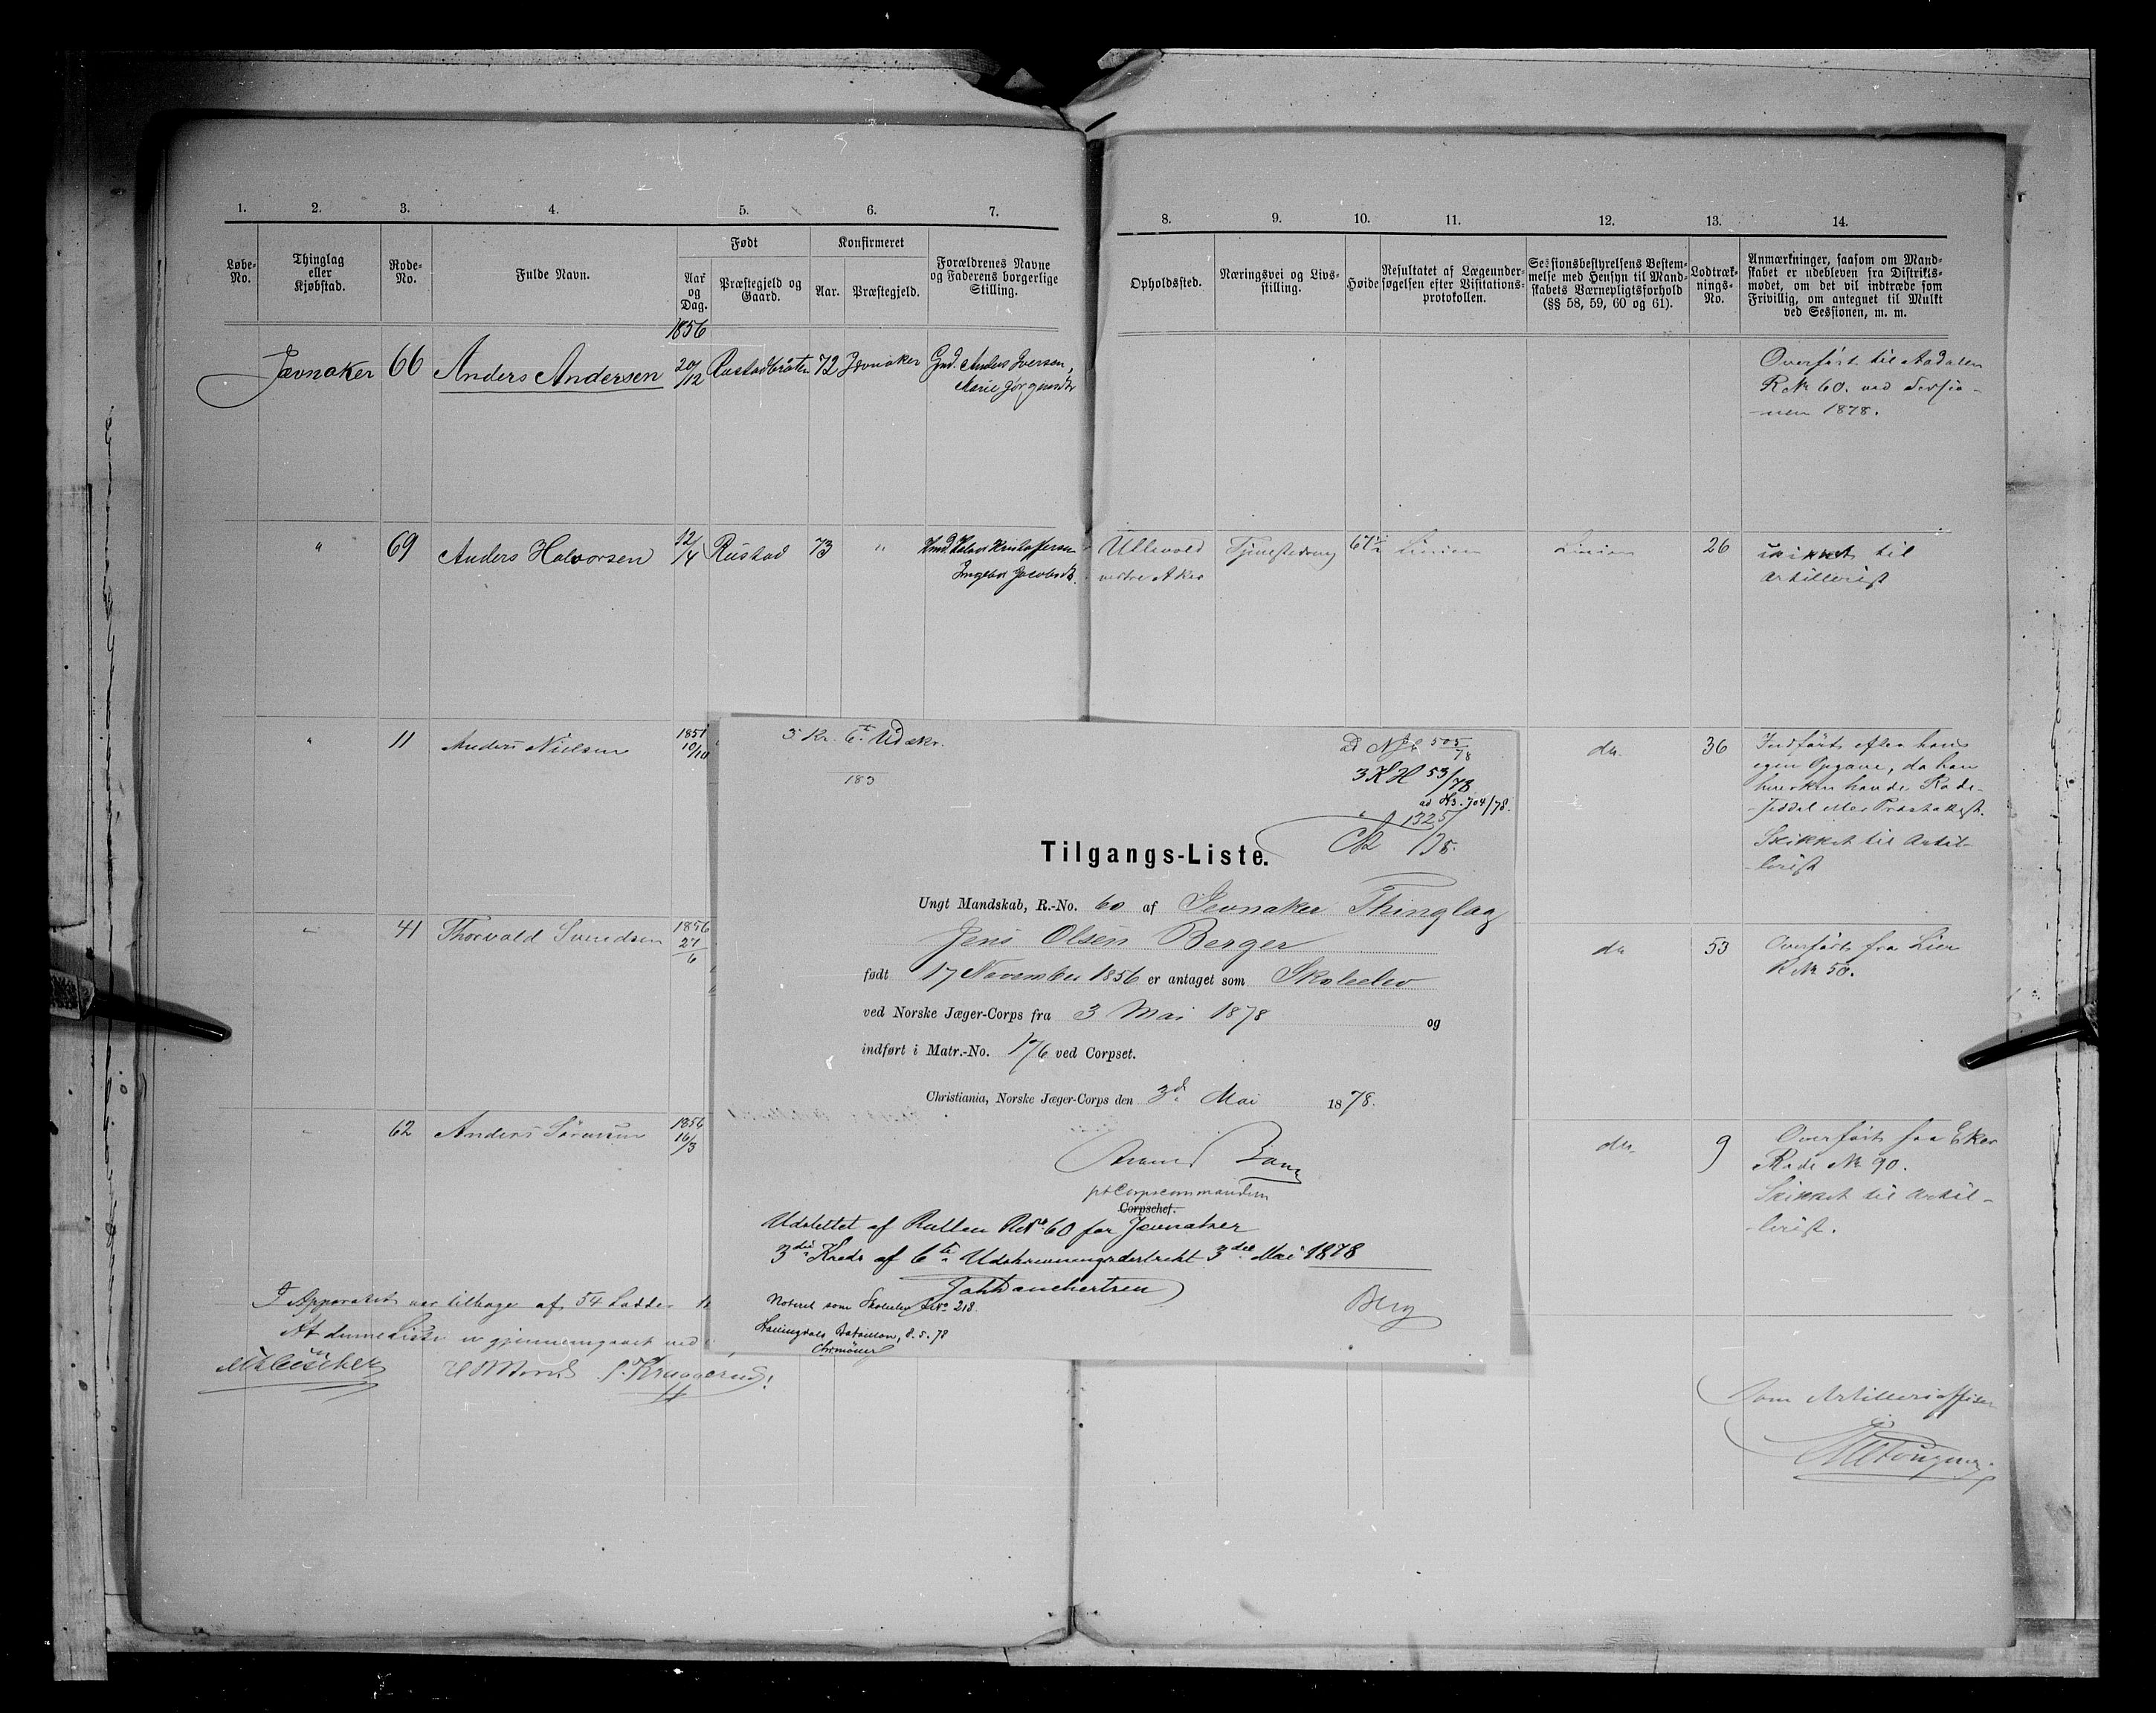 1. 2. 3. 4. 5. 6. 7. 8. 9. 10. 11. 12. 13. 14.
Løbe-No.
Thinglag eller Kjøbstad.
Rode-No.
Fulde Navn.
Født
Aar og Dag.
Præstegjeld og Gaard.
Konfirmeret
Aar.
Præstegjeld.
Forældrenes Navne og Faderens borgerlige Stilling.
Opholdssted.
Næringsvei og Livsstilling.
Høide
Resultatet af Lægeundersøgelsen efter Visitationsprotokollen.
Sessionsbestyrelsens Bestemmelse med Hensyn til Mandskabets Værnepligtsforhold (§§ 58, 59, 60 og 61).
Lodtræknings-No.
Anmærkninger, saasom om Mandskabet er udebleven fra Distriktsmødet, om det vil indtræde som Frivillig, om antegnet til Mulkt ved Sessionen, m. m.
1856
Jævnaker 66 Anders Andersen 20/12 Rustadbråten 72 Jevnaker Gmd. Anders Iversen,
Marie Jørgensdr
Overført til Aadalen
R.№ 60. ved Sessio-
-nen 1878.
" 69 Anders Halvorsen 12/14 Rustad 73 " Hmd. Halvor Kristoffersen
Ingebor Jacobsdt.
Ullevold
vestre Aker
Tjenestedreng 67½ Linien Linien 26 skikket til
Artillerist
" 11 Anders Nielsen 1851 10/10
do. 36 Indført efter hans
egen Opgave, da han
hverken havde Rode-
-seddel eller Præsteattest.
Skikket til Artil-
-lerist
" 41 Thorvald Svendsen 1856 27/6
do 53 Overført fra Lier
R№ 50.
" 62 Anders Sørensen 1856 16/3
do. 9 Overført fra Eker
Rode № 90.
Skikket til Artil-
-lerist.
3. Kr. 6te Udskr.
183
ad № 505/78
3 K H 53/78
ad H3. 704/78.
1325/78.
Tilgangs-Liste.
Ungt Mandskab, R.-No. 60 af Jevnaker Thinglag
Jens Olsen Berger
født 17 November 1856 er antaget som Skoleelev
ved Norske Jæger-Corps fra 3 Mai 1878 og
indført i Matr.-No. 176 ved Corpset.
Christiania, Norske Jæger-Corps den 3d. Mai 1878.
Bang
pt Corpscommandeur
Corpschef.
Udslettet af Rullen R№ 60 for Jevnaker
3die Kreds af 6te Udskrivningsdistrikt 3die Mai 1878
Noteret som Skoleelev 213.
Hallingdals Bataillon, 8.5.78
Chr Møller
Berg
I Apparatet var tilbage af 54 Lodder
At denne Liste er gjennemgaaet ved
Som Artilleriofficer